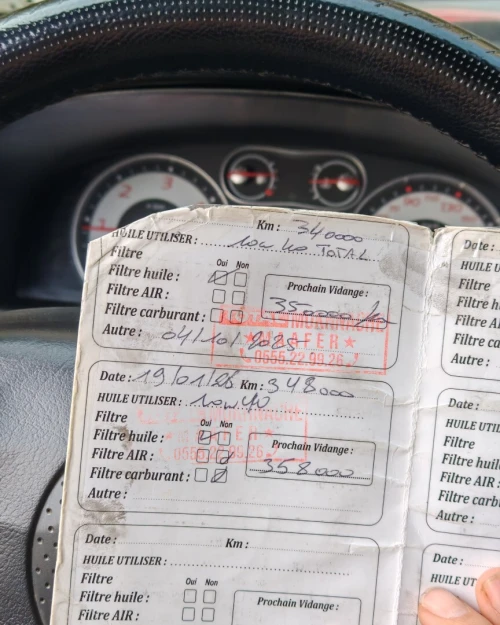 Km : 340000
HUILE UTILISER : 10w40 TOTAL
Filtre Oui Non
Filtre huile :
Prochain Vidange :
Filtre AIR :
350000 km
Filtre carburant :
Autre : 04/10/2025
MAAFER
0655.22.99.26
Date : 19/01/26 Km : 348000
HUILE UTILISER : 10w40
Filtre Oui Non
Filtre huile :
Prochain Vidange :
Filtre AIR :
358000
Filtre carburant :
Autre :
0655.22.99.26
Date : Km :
HUILE UTILISER :
Filtre Oui Non
Filtre huile :
Prochain Vidange :
Filtre AIR :
Date
HUILE
Filtre
Filtre h
Filtre A
Filtre ca
Autre :
Date :
HUILE U
Filtre
Filtre huil
Filtre AIR
Filtre carb
Autre :
Date :
HUILE UT
2 3